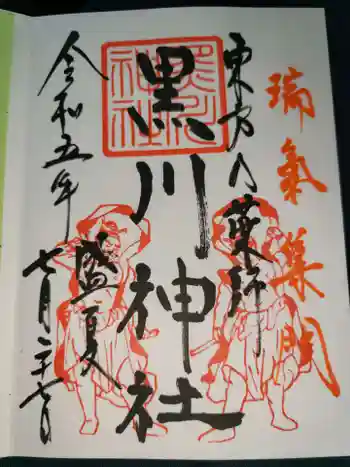 瑞氣集門
東方の薬師
黒川神社
黒川神社
令和五年
盛夏
七月二十七日